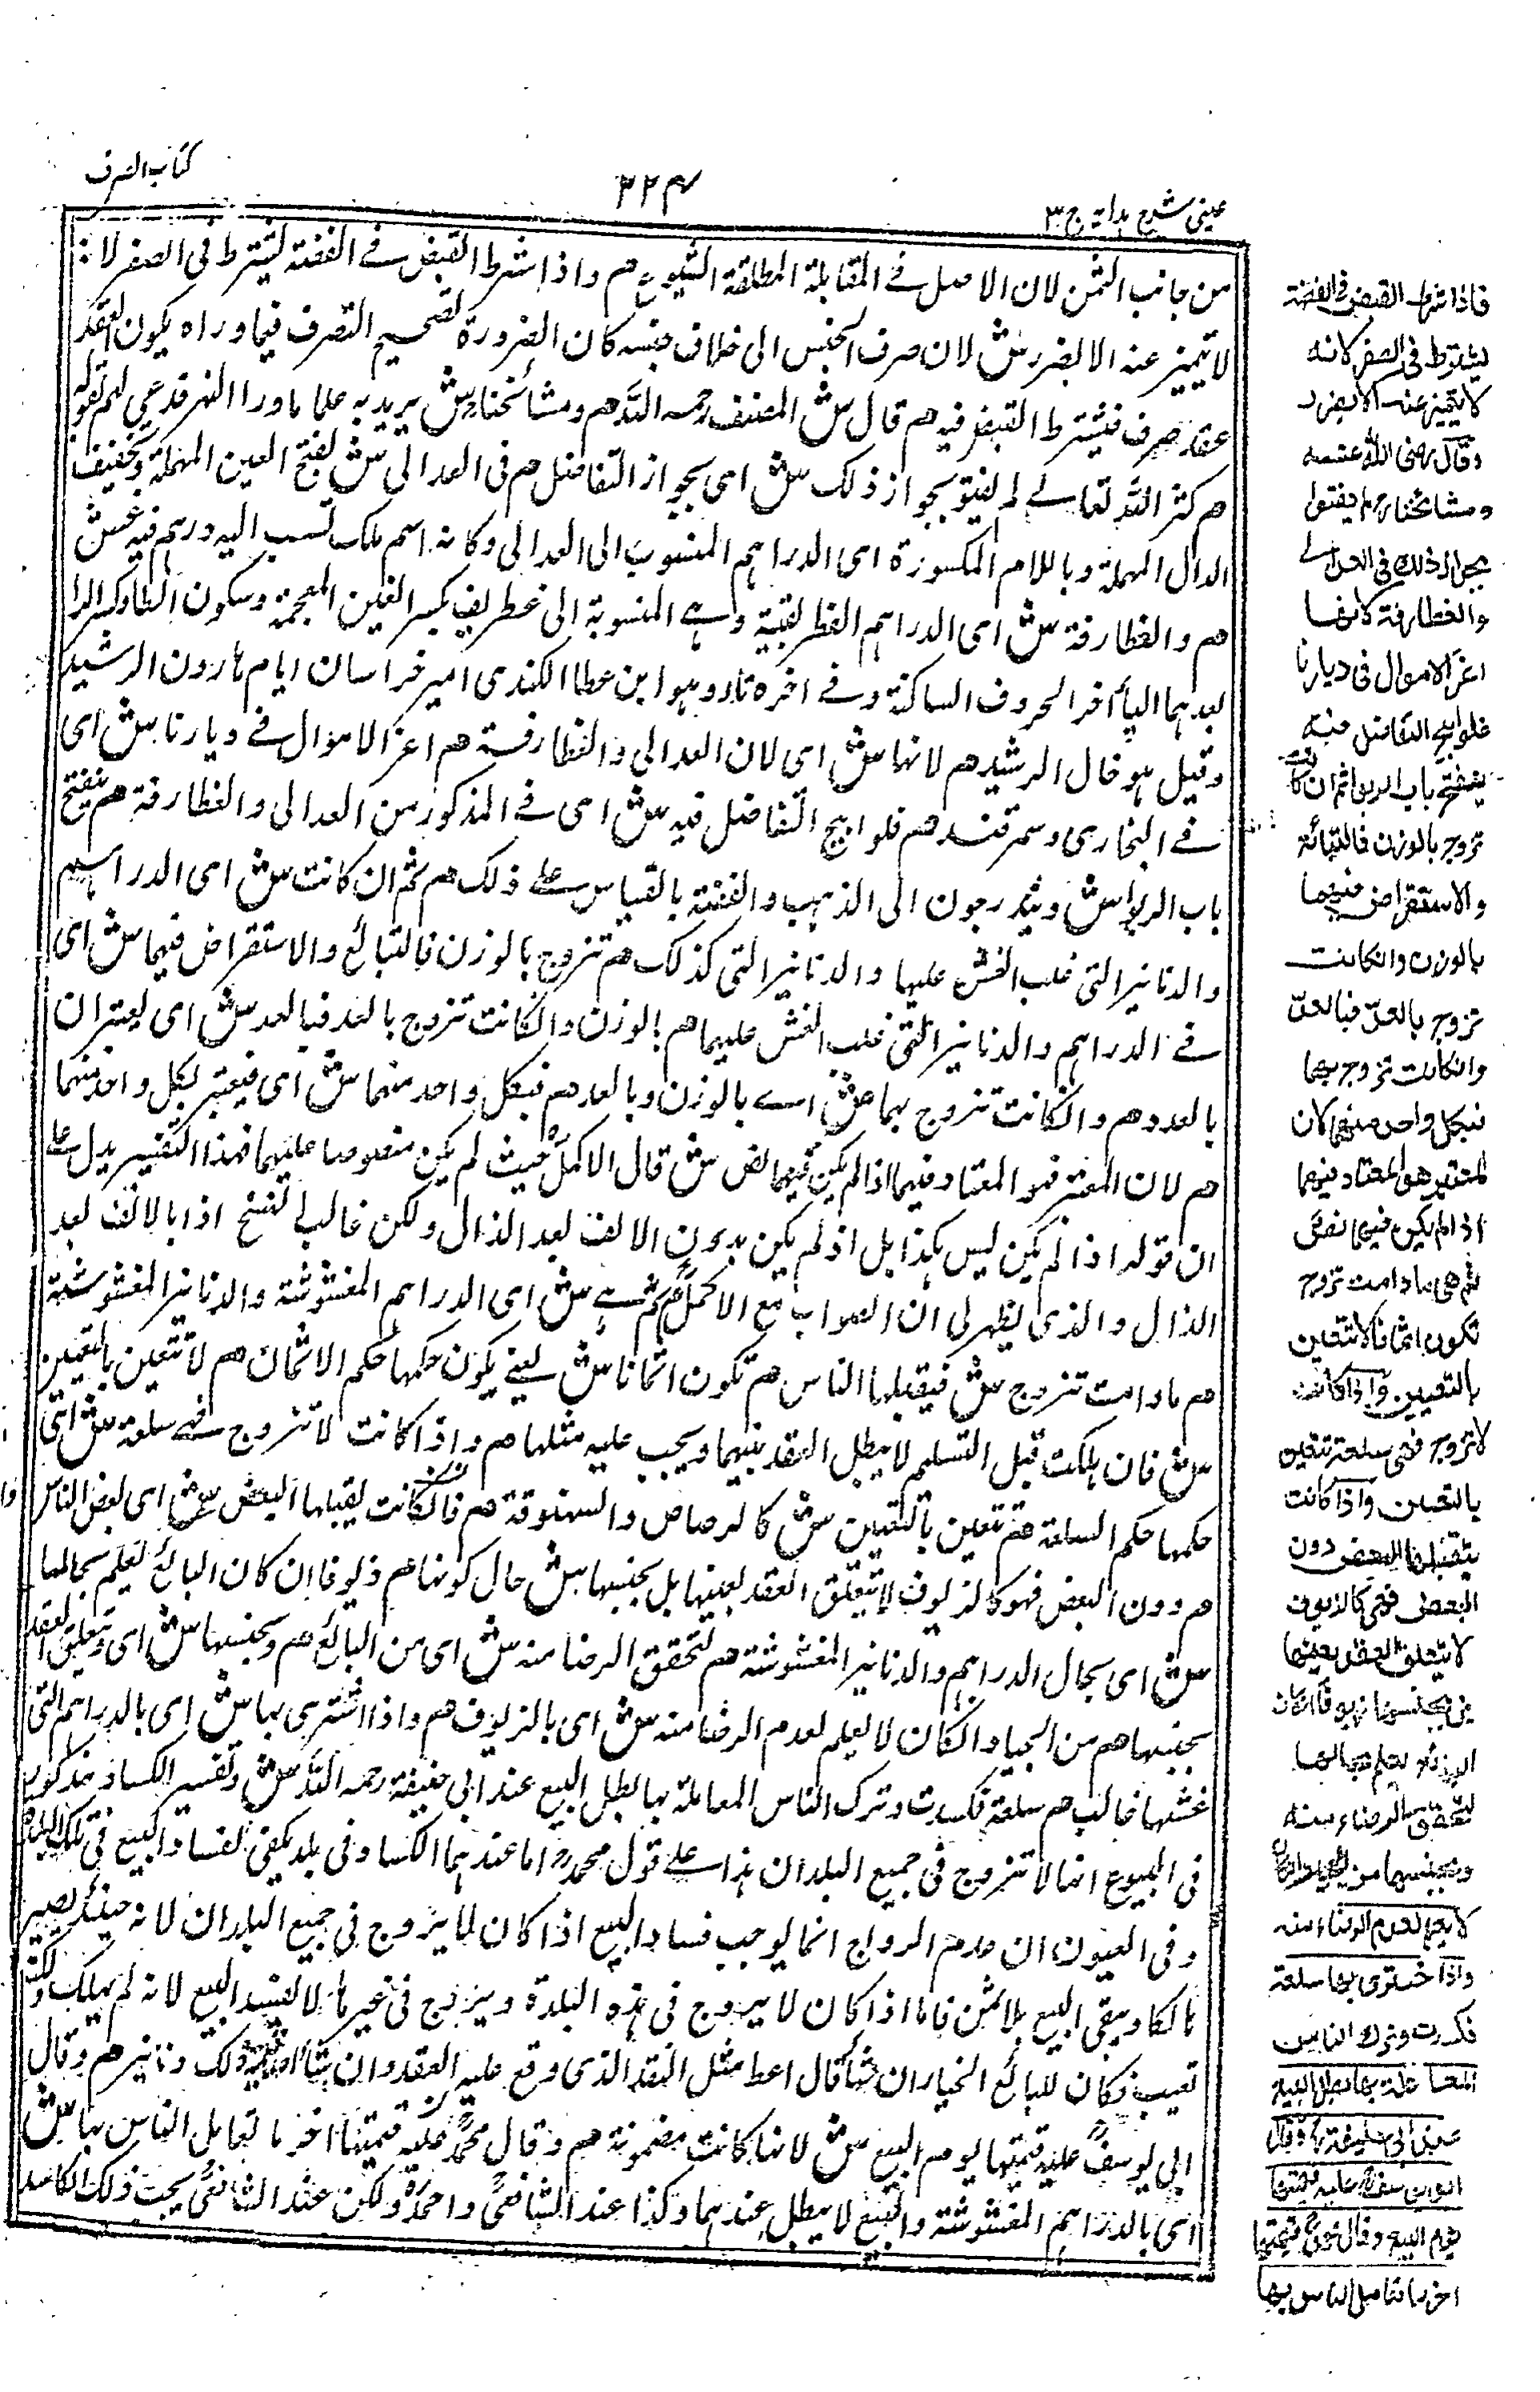 عینی شرح ہدایہ ج ۳
۳۲۴
کتاب الصرف
من جانب الثمن لان الاصل فے المقابلة المطلقة الشیوع هم واذا شرط القبض فے الفضة یشترط فی الصفر لانہ
لا یتمیز عنہ الا بضرر ش لان صرف الجنس الی خلاف جنسہ کان لضرورة تصحیح التصرف فیما وراہ یکون العقد
عقد صرف فیشترط القبض فیہ هم قال ش المصنف رحمہ اللہ هم ومشائخنا ش یرید بہ علما ماوراالنہر قد عی لہم لقولہ
هم کثر اللہ تعالے لم یفتو بجواز ذلک ش ای بجواز التفاضل هم فی العدالی ش بفتح العین المہملة وتخفیف
الدال المہملة وباللام المکسورة ای الدراہم المنسوب الی العدالی وکانہ اسم ملک نسب الیہ درہم فیہ غش
هم والغطارفة ش ای الدراہم الغطریفیة وہے المنسوبة الی غطریف بکسر الغین المعجمة وسکون الطا وکسر الرا
بعدہما الیاء اخر الحروف الساکنة وفے اخرہ فاء وہو ابن عطا الکندی امیر خراسان ایام ہارون الرشید
وقیل ہو خال الرشید هم لانہا ش ای لان العدالی والغطارفة هم اعز الاموال فے دیارنا ش ای
فے البخاری وسمرقند هم فلو ابیح التفاضل فیہ ش ای فے المذکور من العدالی والغطارفة هم ینفتح
باب الربوا ش ویتدرجون الی الذہب والفضة بالقیاس علے ذلک هم ثم ان کانت ش ای الدراہم
والدنانیر التی غلب الغش علیہا والدنانیر التی کذلک هم تروج بالوزن فالتبائع والاستقراض فیہما ش ای
فے الدراہم والدنانیر التی غلب الغش علیہما هم بالوزن وانکانت تروج بالعد فبالعد ش ای یعتبران
بالعدد هم وانکانت تروج بہما ش اے بالوزن وبالعد هم فبکل واحد منہما ش ای فیعتبر بکل واحد منہما
هم لان المعتبر ہو المعتاد فیہما اذا لم یکن فیہما نص ش قال الاکمل حیث لم یکن منصوصا علیہما فہذا التفسیر یدل علے
ان قولہ اذا لم یکن لیس ہکذا بل اذ لم یکن بدون الالف بعد الذال ولکن غالب النسخ اذا بالالف بعد
الذال والذی یظہر لی ان الصواب مع الاکمل هم ثم ہے ش ای الدراہم المغشوشة والدنانیر المغشوشة
هم ما دامت تروج ش فیقبلہا الناس هم تکون اثمانا ش یعنے یکون حکمہا حکم الاثمان هم لا تتعین بالتعیین
ش فان ہلکت قبل التسلیم لا یبطل العقد بینہما ویجب علیہ مثلہا هم واذا کانت لا تروج فہے سلعة ش ای
حکمہا حکم السلعة هم تتعین بالتعیین ش کالرصاص والستوقة هم فان کانت یقبلہا البعض ش ای بعض الناس
هم دون البعض فہو کالزیوف لا یتعلق العقد بعینہا بل بجنسہا ش حال کونہا هم زیوفا ان کان البائع یعلم بحالہا
ش ای بحال الدراہم والدنانیر المغشوشة هم لتحقق الرضا منہ ش ای من البائع هم وبجنسہا ش ای ویتعلق العقد
بجنسہا هم من الجیاد ان کان لا یعلم لعدم الرضا منہ ش ای بالزیوف هم واذا اشتری بہا ش ای بالدراہم التی
غشہا غالب هم سلعة فکسدت وترک الناس المعاملة بہا بطل البیع عند ابی حنیفة رحمہ اللہ ش وتفسیر الکساد مذکور
فی البیوع انہا لا تروج فی جمیع البلدان ہذا علے قول محمد اما عندہما الکساد فی بلد یکفی لفساد البیع فی تلک البلدة
وفی العیون ان عدم الرواج انما یوجب فساد البیع اذا کان لما یروج فی جمیع البلدان لانہ حینئذ یصیر
ہالکا ویبقی البیع بلا ثمن فاما اذا کان لا یروج فی ہذہ البلدة ویروج فی غیرہا لا یفسد البیع لانہ لم یہلک ولکنہ
تعیب فکان للبائع الخیار ان شاء قال اعط مثل النقد الذی وقع علیہ العقد وان شاء اخذ قیمة ذلک دنانیر هم وقال
ابی یوسف علیہ قیمتہا یوم البیع ش لانہا کانت مضمونة هم وقال محمد علیہ قیمتہا اخر ما تعامل الناس بہا ش
ای بالدراہم المغشوشة والبیع لا یبطل عندہما وکذا عند الشافعی واحمد ولکن عند الشافعی یجب ذلک الکاسد
فاذا شرط القبض فی الفضة
یشترط فی الصفر لانہ
لا یتمیز عنہ الا بضرر
وقال رضی اللہ عنہ
ومشائخنا لم یفتوا
بجواز ذلک فی العدالے
والغطارفة لانہا
اعز الاموال فی دیارنا
فلو ابیح التفاضل فیہ
ینفتح باب الربوا ثم ان کانت
تروج بالوزن فالتبائع
والاستقراض فیہما
بالوزن وانکانت
تروج بالعد فبالعد
وانکانت تروج بہما
فبکل واحد منہما لان
المعتبر ہو المعتاد فیہما
اذا لم یکن فیہما نص
ثم ہی ما دامت تروج
تکون اثمانا لا تتعین
بالتعیین واذا کانت
لا تروج فہی سلعة تتعین
بالتعیین واذا کانت
یتقبلہا البعض دون
البعض فہی کالزیوف
لا یتعلق العقد بعینہا
بل بجنسہا زیوفا ان کان
البائع یعلم بحالہا
لتحقق الرضاء منہ
وبجنسہا من الجیاد ان کان
لا یعلم لعدم الرضاء منہ
واذا اشتری بہا سلعة
فکسدت وترک الناس
المعاملة بہا بطل البیع
عند ابی حنیفة وقال
ابو یوسف علیہ قیمتہا
یوم البیع وقال محمد قیمتہا
اخر ما تعامل الناس بہا